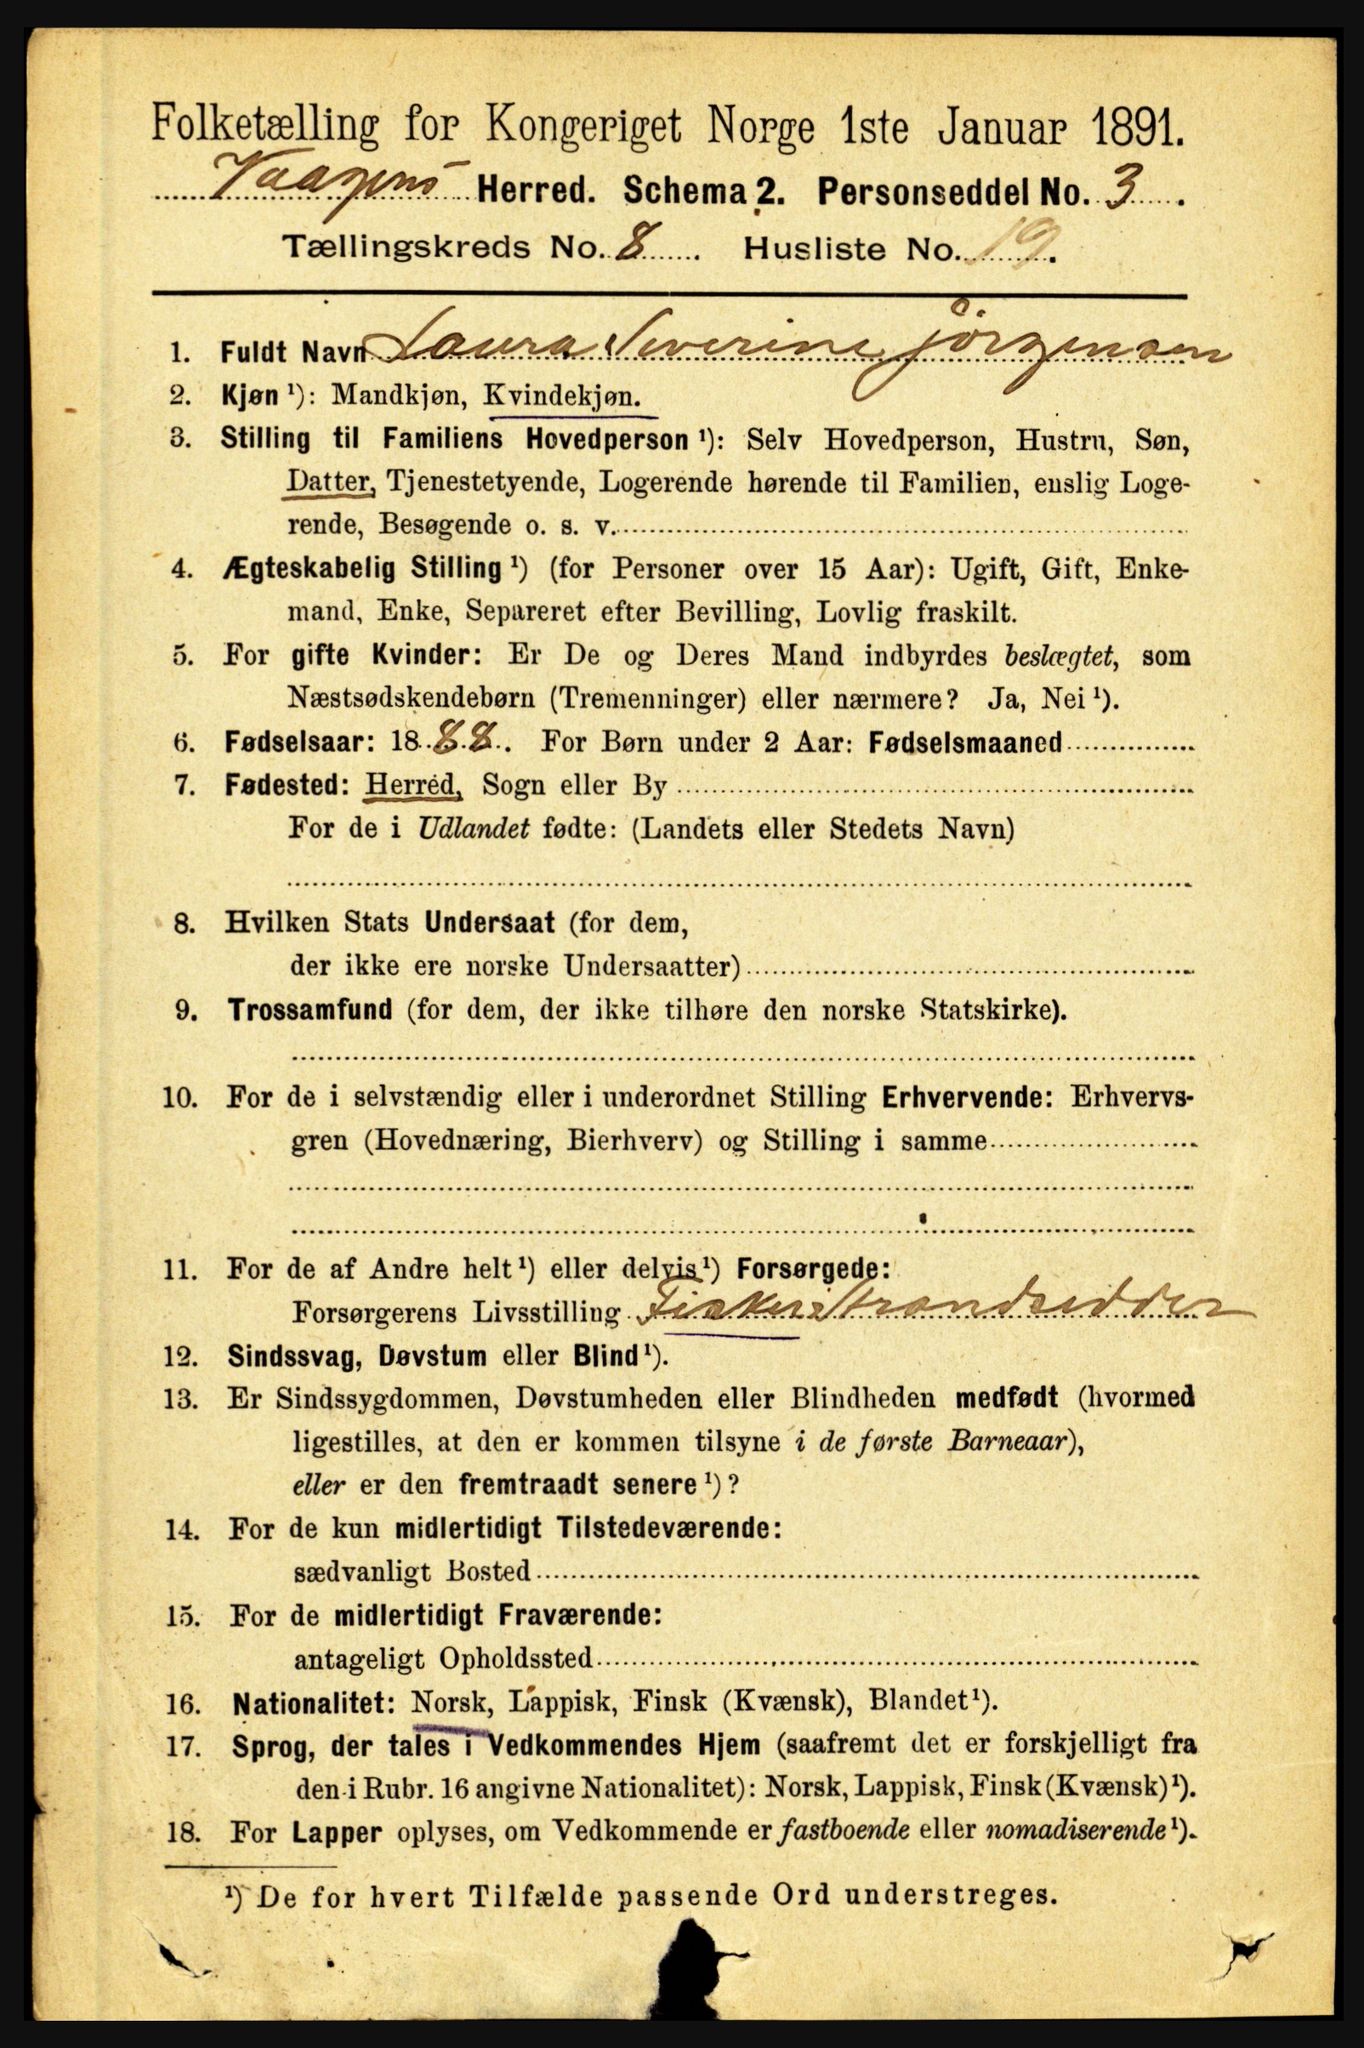 Folketælling for Kongeriget Norge 1ste Januar 1891.
Vaagens Herred. Schema 2. Personseddel No. 3.
Tællingskreds No. 8. Husliste No. 19.
1. Fuldt Navn Laura Severine Jörgensen
2. Kjøn ¹): Mandkjøn, Kvindekjøn.
3. Stilling til Familiens Hovedperson ¹): Selv Hovedperson, Hustru, Søn,
Datter, Tjenestetyende, Logerende hørende til Familien, enslig Loge-
rende, Besøgende o. s. v.
4. Ægteskabelig Stilling ¹) (for Personer over 15 Aar): Ugift, Gift, Enke-
mand, Enke, Separeret efter Bevilling, Lovlig fraskilt.
5. For gifte Kvinder: Er De og Deres Mand indbyrdes beslægtet, som
Næstsødskendebørn (Tremenninger) eller nærmere? Ja, Nei ¹).
6. Fødselsaar: 1888. For Børn under 2 Aar: Fødselsmaaned
7. Fødested: Herred, Sogn eller By
For de i Udlandet fødte: (Landets eller Stedets Navn)
8. Hvilken Stats Undersaat (for dem,
der ikke ere norske Undersaatter)
9. Trossamfund (for dem, der ikke tilhøre den norske Statskirke).
10. For de i selvstændig eller i underordnet Stilling Erhvervende: Erhvervs-
gren (Hovednæring, Bierhverv) og Stilling i samme
11. For de af Andre helt ¹) eller delvis ¹) Forsørgede:
Forsørgerens Livsstilling Fisker Strandsidder
12. Sindssvag, Døvstum eller Blind ¹).
13. Er Sindssygdommen, Døvstumheden eller Blindheden medfødt (hvormed
ligestilles, at den er kommen tilsyne i de første Barneaar),
eller er den fremtraadt senere ¹)?
14. For de kun midlertidigt Tilstedeværende:
sædvanligt Bosted
15. For de midlertidigt Fraværende:
antageligt Opholdssted
16. Nationalitet: Norsk, Lappisk, Finsk (Kvænsk), Blandet ¹).
17. Sprog, der tales i Vedkommendes Hjem (saafremt det er forskjelligt fra
den i Rubr. 16 angivne Nationalitet): Norsk, Lappisk, Finsk (Kvænsk) ¹).
18. For Lapper oplyses, om Vedkommende er fastboende eller nomadiserende ¹).
¹) De for hvert Tilfælde passende Ord understreges.